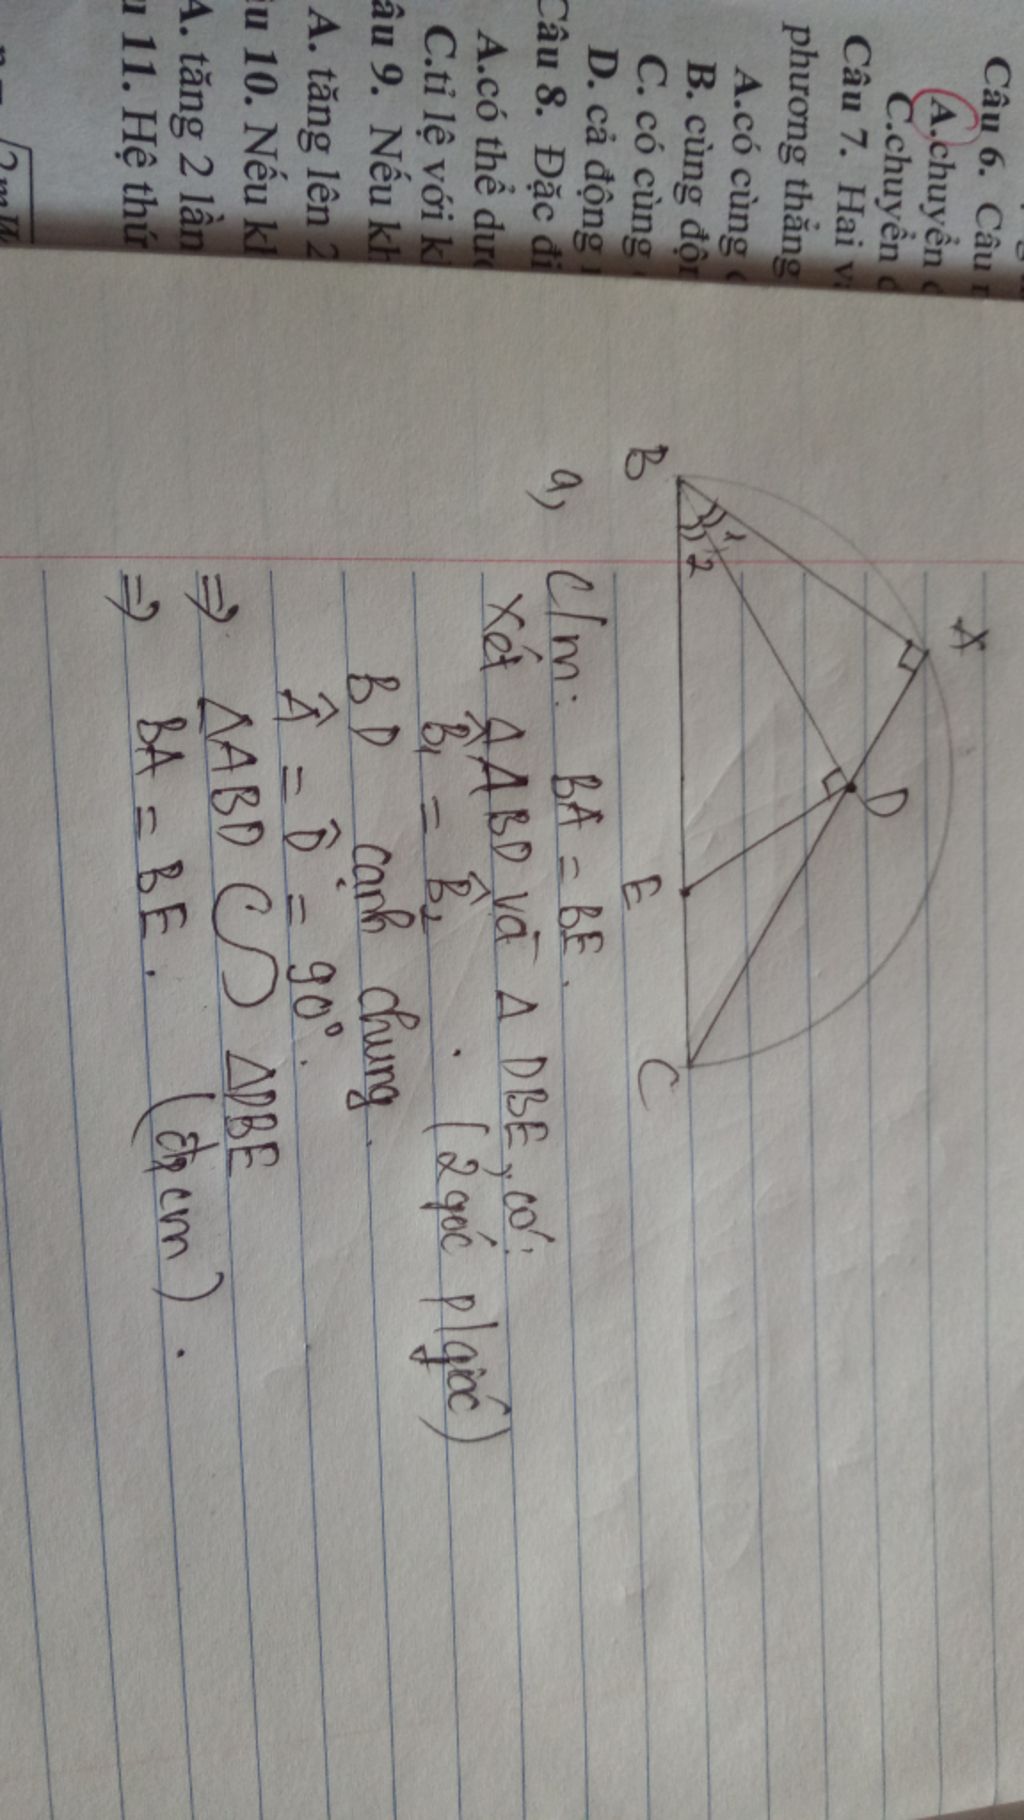 Câu 6. Câu
A.chuyển
C.chuyển
Câu 7. Hai
phương thẳng
A.có cùng
B. cùng độn
C. có cùng
D. cả động
Câu 8. Đặc
A.có thể
C.tỉ lệ với
9. Nếu
A. tăng lên 2
10. Nếu
A. tăng 2 lần
11. Hệ thứ
X
D
1
2
B
E
C
a,
C/m: BA = BE.
Xét Δ ABD và Δ DBE, có:
B̂₁ = B̂₂ . (2 góc p/giác)
BD cạnh chung.
Â = D̂ = 90°.
⇒ ΔABD ∽ ΔDBE
⇒ BA = BE. (đpcm).